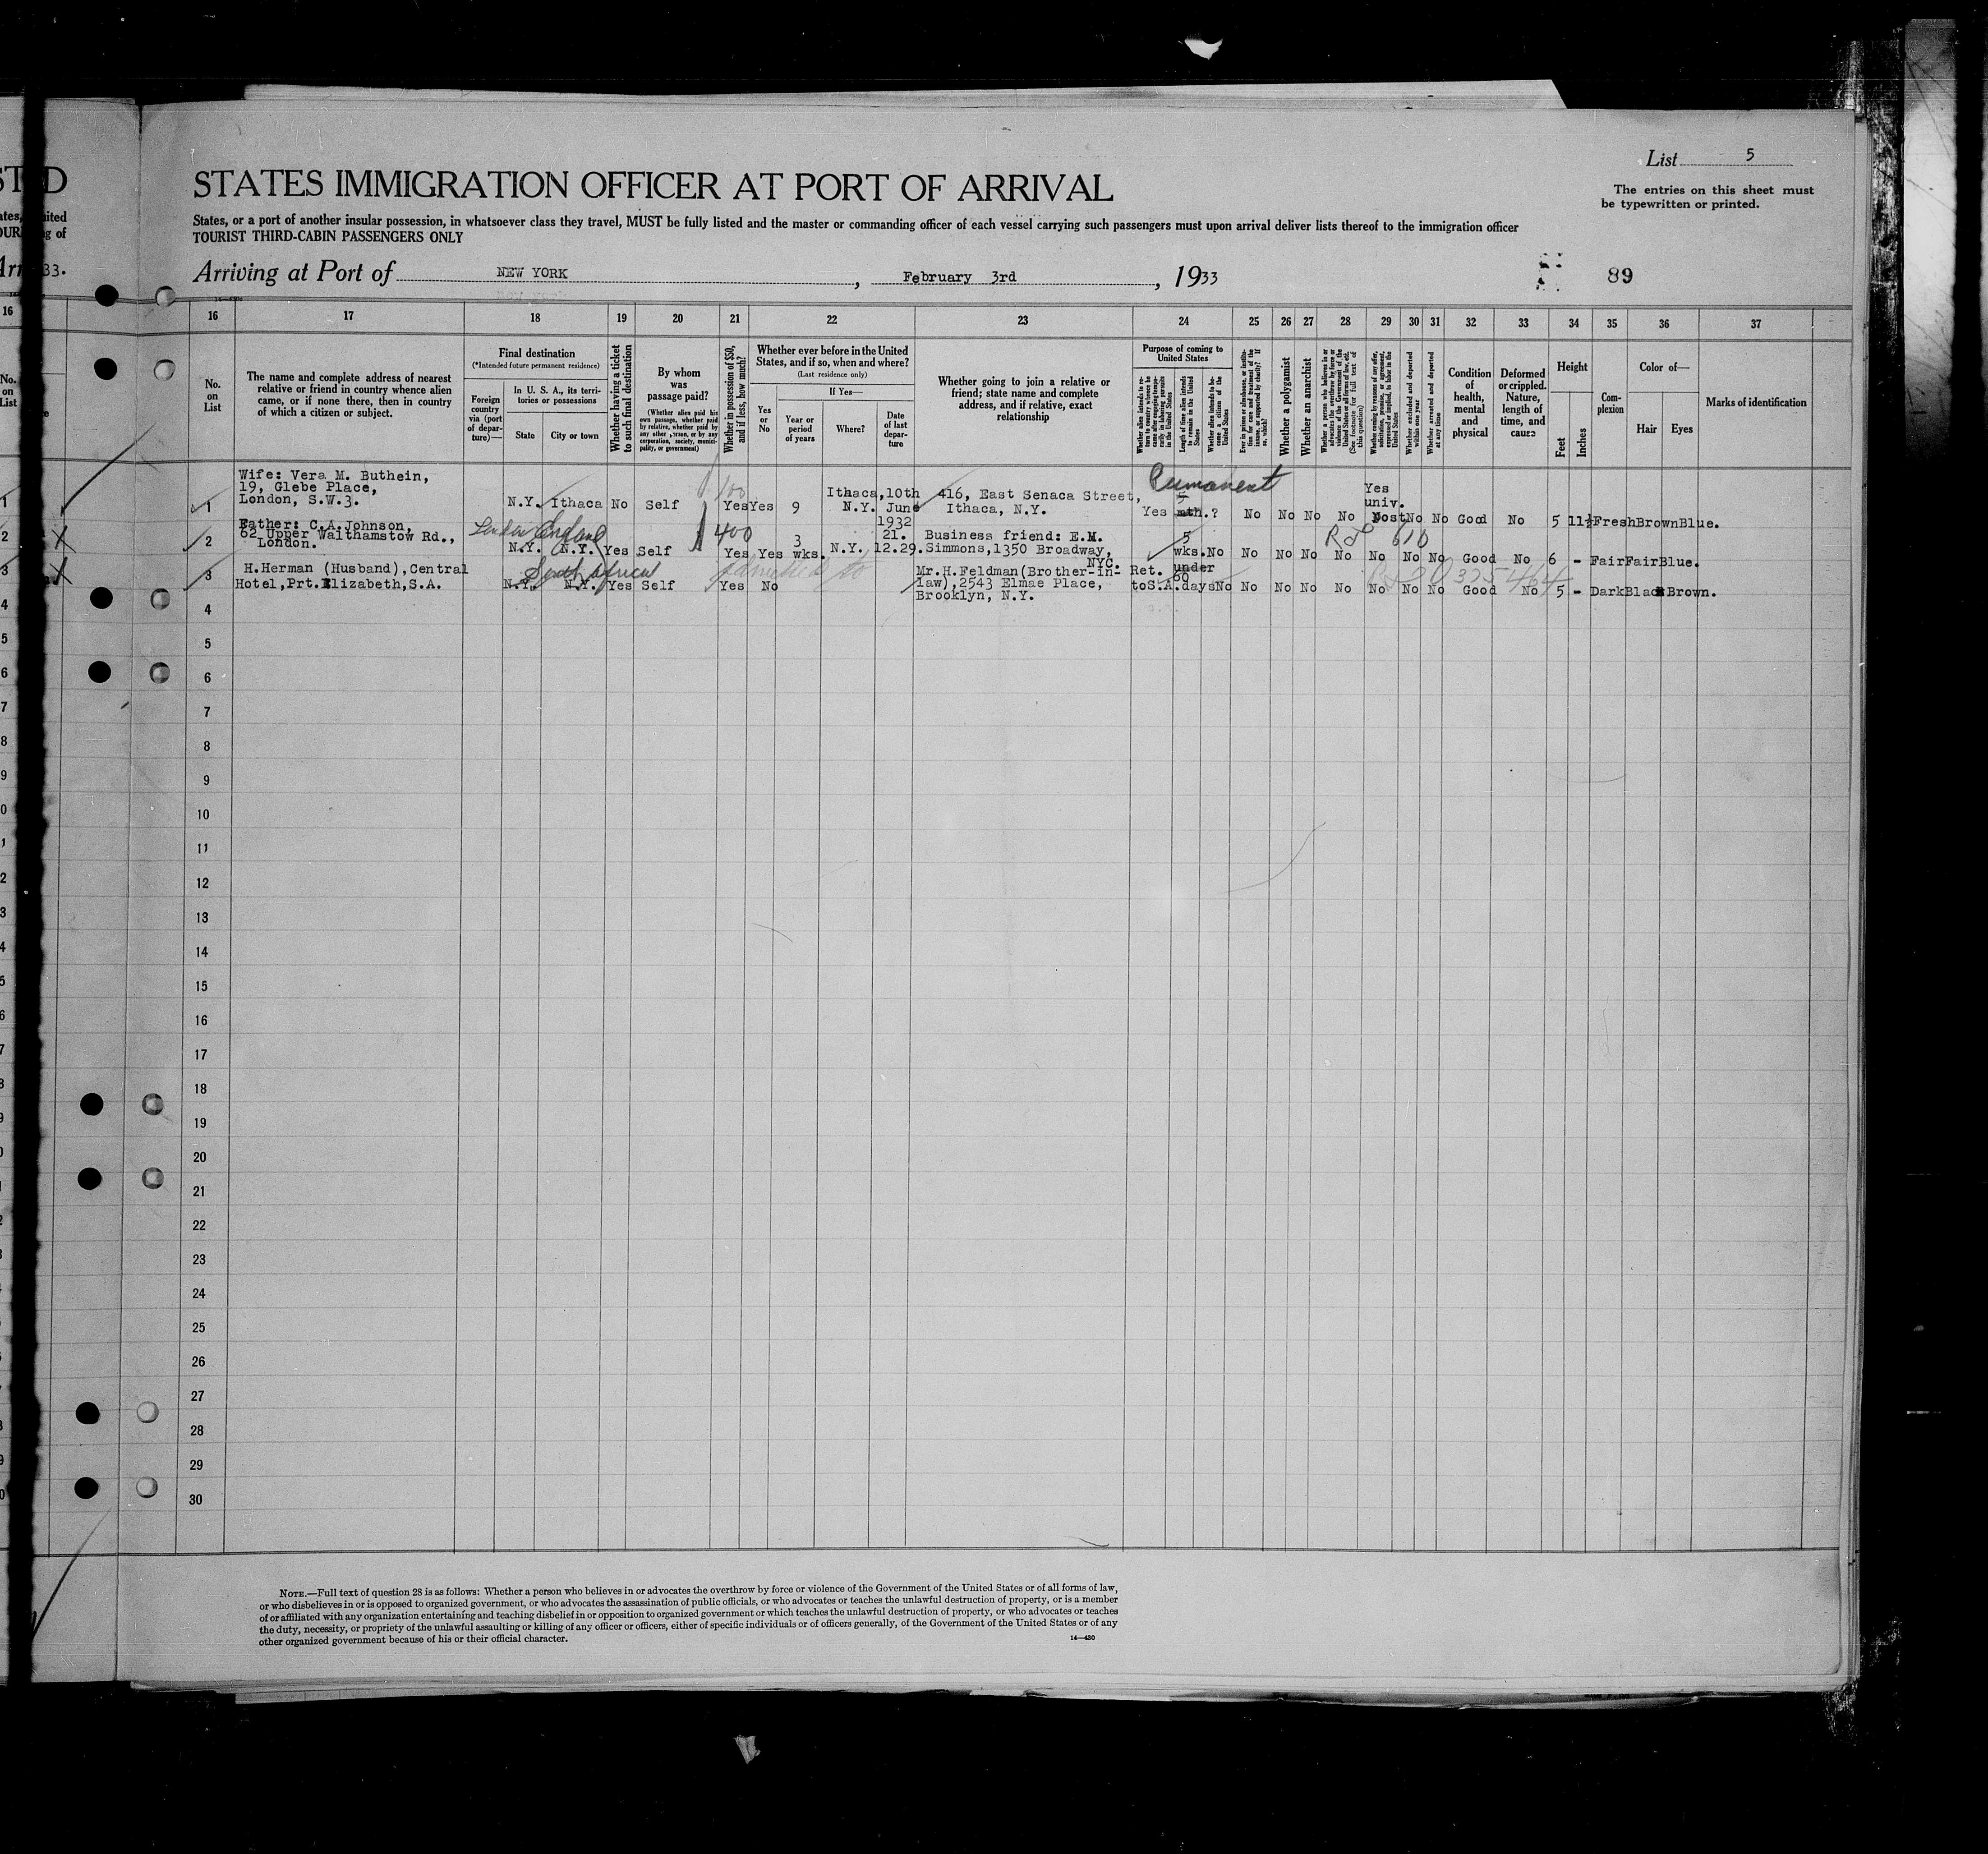 List 5
STATES IMMIGRATION OFFICER AT PORT OF ARRIVAL
The entries on this sheet must
be typewritten or printed.
States, or a port of another insular possession, in whatsoever class they travel, MUST be fully listed and the master or commanding officer of each vessel carrying such passengers must upon arrival deliver lists thereof to the immigration officer
TOURIST THIRD-CABIN PASSENGERS ONLY
Arriving at Port of NEW YORK, February 3rd, 1933
89
16 17 18 19 20 21 22 23 24 25 26 27 28 29 30 31 32 33 34 35 36 37
No. on List
The name and complete address of nearest relative or friend in country whence alien came, or if none there, then in country of which a citizen or subject.
Final destination
(*Intended future permanent residence)
Foreign country via (port of departure)—
In U. S. A., its territories or possessions
State
City or town
Whether having a ticket to such final destination
By whom was passage paid?
(Whether alien paid his own passage, whether paid by relative, whether paid by any other person, or by any corporation, society, municipality, or government)
Whether in possession of $50, and if less, how much?
Whether ever before in the United States, and if so, when and where?
(Last residence only)
Yes or No
If Yes—
Year or period of years
Where?
Date of last departure
Whether going to join a relative or friend; state name and complete address, and if relative, exact relationship
Purpose of coming to United States
Whether alien intends to return to country whence he came after engaging temporarily in laboring pursuits in the United States
Length of time alien intends to remain in the United States
Whether alien intends to become a citizen of the United States
Ever in prison or almshouse, or institution for care and treatment of the insane, or supported by charity? If so, which?
Whether a polygamist
Whether an anarchist
Whether a person who believes in or advocates the overthrow by force or violence of the Government of the United States or all forms of law, etc. (See footnote for full text of this question)
Whether coming by reason of any offer, solicitation, promise, or agreement, expressed or implied, to labor in the United States
Whether excluded and deported within one year
Whether arrested and deported at any time
Condition of health, mental and physical
Deformed or crippled. Nature, length of time, and cause
Height
Feet
Inches
Complexion
Color of—
Hair
Eyes
Marks of identification
1 Wife: Vera M. Buthein,
19, Glebe Place,
London, S.W.3.
N.Y. Ithaca No Self 100 Yes Yes 9 Ithaca, N.Y. 10th June 1932 416, East Senaca Street, Ithaca, N.Y. Permanent Yes mth.? No No No No Yes univ. post No No Good No 5 11½ Fresh Brown Blue.
2 Father: C.A.Johnson,
62 Upper Walthamstow Rd.,
London.
London England N.Y. N.Y. Yes Self 400 Yes Yes 3 wks. N.Y. 21. 12.29. Business friend: E.M. Simmons, 1350 Broadway, NYC. 5 wks. No No No No No No No No Good No 6 - Fair Fair Blue.
3 H.Herman (Husband), Central
Hotel, Prt.Elizabeth, S.A.
South Africa N.Y. N.Y. Yes Self admitted to Yes No Mr.H.Feldman (Brother-in-law), 2543 Elmae Place, Brooklyn, N.Y. Ret. to S.A. under 60 days No No No No No No No No Good No 5 - Dark Black Brown.
4
5
6
7
8
9
10
11
12
13
14
15
16
17
18
19
20
21
22
23
24
25
26
27
28
29
30
NOTE.—Full text of question 28 is as follows: Whether a person who believes in or advocates the overthrow by force or violence of the Government of the United States or of all forms of law,
or who disbelieves in or is opposed to organized government, or who advocates the assassination of public officials, or who advocates or teaches the unlawful destruction of property, or is a member
of or affiliated with any organization entertaining and teaching disbelief in or opposition to organized government or which teaches the unlawful destruction of property, or who advocates or teaches
the duty, necessity, or propriety of the unlawful assaulting or killing of any officer or officers, either of specific individuals or of officers generally, of the Government of the United States or of any
other organized government because of his or their official character.
14—430